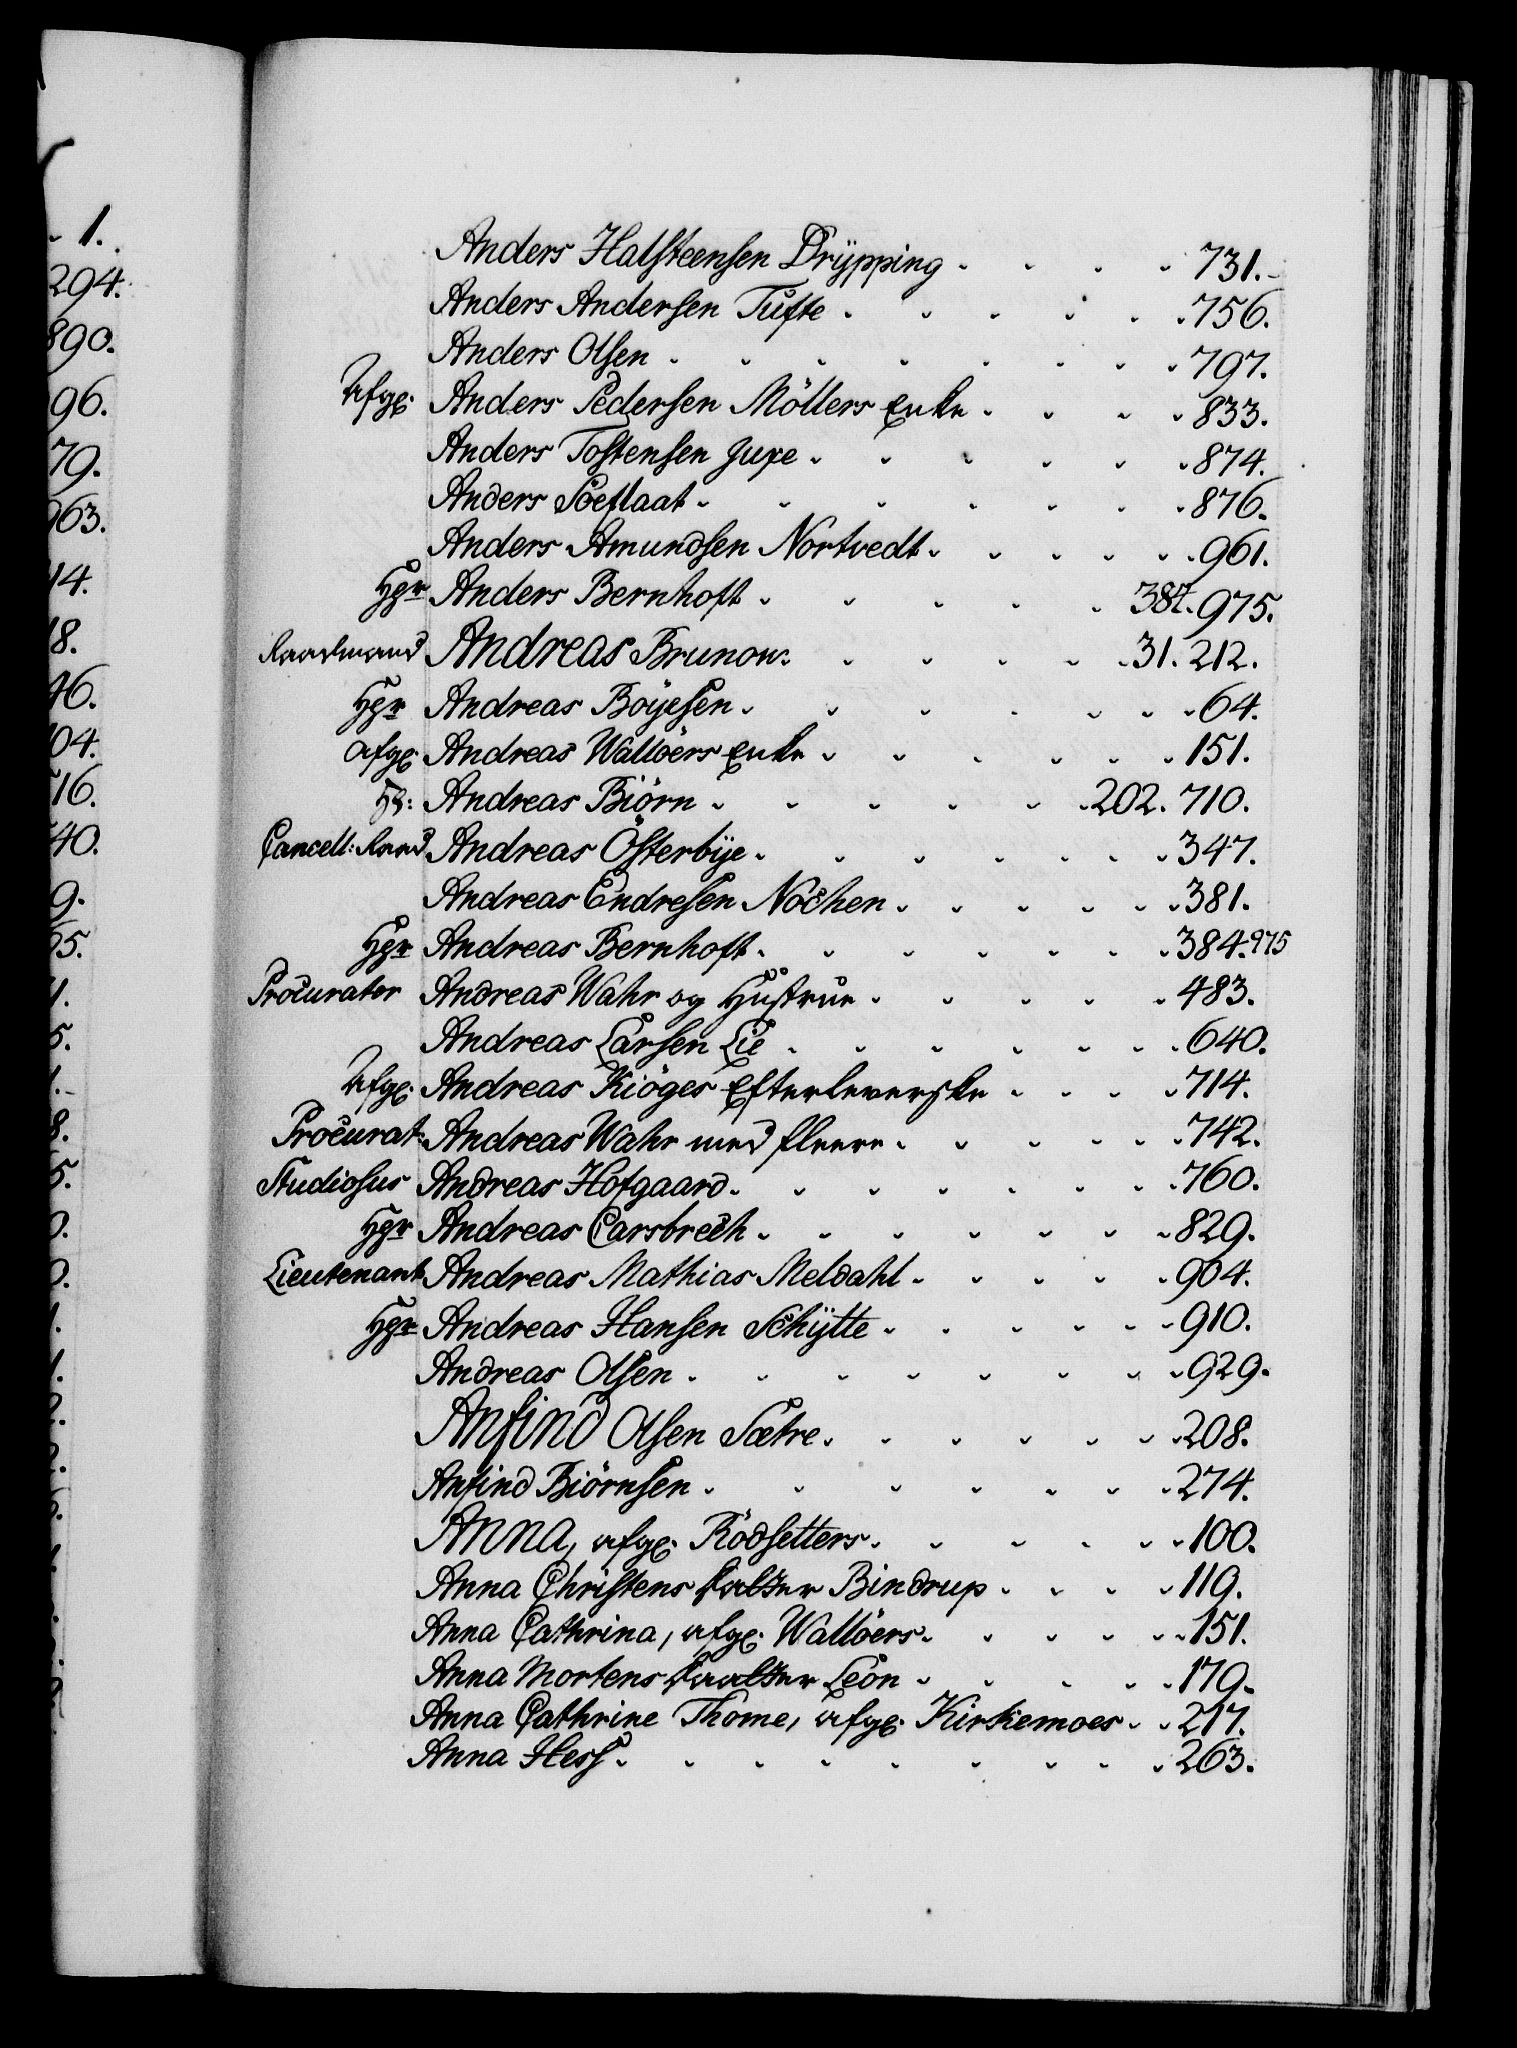 1.
294.
890.
96.
79.
963.
14.
18.
46.
04.
716.
40.
9.
Anders Halsteensen Drÿpping - - - - 731.
Anders Andersen Tufte - - - - - - 756.
Anders Olsen - - - - - - - - 797.
Afg: Anders Pedersen Möllers Enke - - - - 833.
Anders Tostensen Juxe - - - - - - 874.
Anders Söeflaat - - - - - - - 876.
Anders Amundsen Nortvedt - - - - - - 961.
Hgr Anders Bernhoft - - - - - 384. 975.
Raadmand Andreas Brunow - - - - - 31. 212.
Hgr Andreas Boÿesen - - - - - - - 64.
afg: Andreas Wallöers Enke - - - - - - 151.
Hr: Andreas Biörn - - - - - - 202. 710.
Cancell: Raad Andreas Österbÿe - - - - - - - 347.
Andreas Endresen Nochen - - - - - - 381.
Hgr Andreas Bernhoft - - - - - - - 384. 975
Procurator Andreas Wahr og Hustrue - - - - - 483.
Andreas Larsen Lie - - - - - - - 640.
Afg: Andreas Kiöges Efterleverske - - - - 714.
Procurat: Andreas Wahr med fleere - - - - - - 742.
Studiosus Andreas Hofgaard - - - - - - - - 760.
Hgr Andreas Carsbrech - - - - - - - 829.
Lieutenant Andreas Mathias Meldahl - - - - - 904.
Hgr Andreas Hansen Schÿtte - - - - - - 910.
Andreas Olsen - - - - - - - - 929.
Anfind Olsen Sætre - - - - - - - 208.
Anfind Biörnsen - - - - - - - 274.
Anna, afg: Rödsetters - - - - - - 100.
Anna Christens Datter Bindrup - - - - 119.
Anna Cathrina, afg: Wallöers - - - - - - 151.
Anna Mortens Daatter Leon - - - - - 179.
Anna Cathrine Thome, afg: Kirkemoes - - 217.
Anna Hess - - - - - - - - - 263.